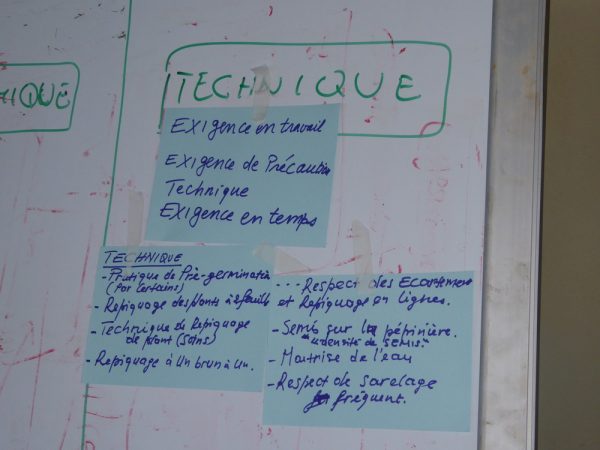 HIQUE
TECHNIQUE
EXIGENCE en travail
EXIGENCE de Précaution
Technique
EXIGENCE en temps
TECHNIQUE
- Pratique de Pré-germination
(par certains)
- Repiquage des plants à 2 feuilles
- Technique de Repiquage
de plant (soins)
- Repiquage à Un brun à Un.
... Respect des Ecartement
et Repiquage en lignes.
- Semis sur la pépinière.
"densité de semis"
- Maitrise de l'eau
- Respect de sarclage
fréquent.